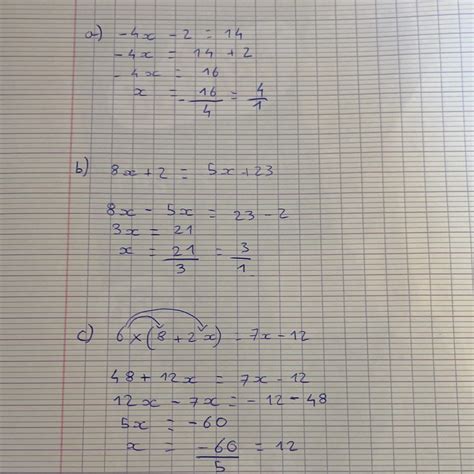 a) -4x - 2 = 14
-4x = 14 + 2
-4x = 16
x = -16/4 = 4/1
b) 8x + 2 = 5x + 23
8x - 5x = 23 - 2
3x = 21
x = 21/3 = 3/1
c) 6 × (8 + 2x) = 7x - 12
48 + 12x = 7x - 12
12x - 7x = - 12 - 48
5x = -60
x = -60/5 = 12